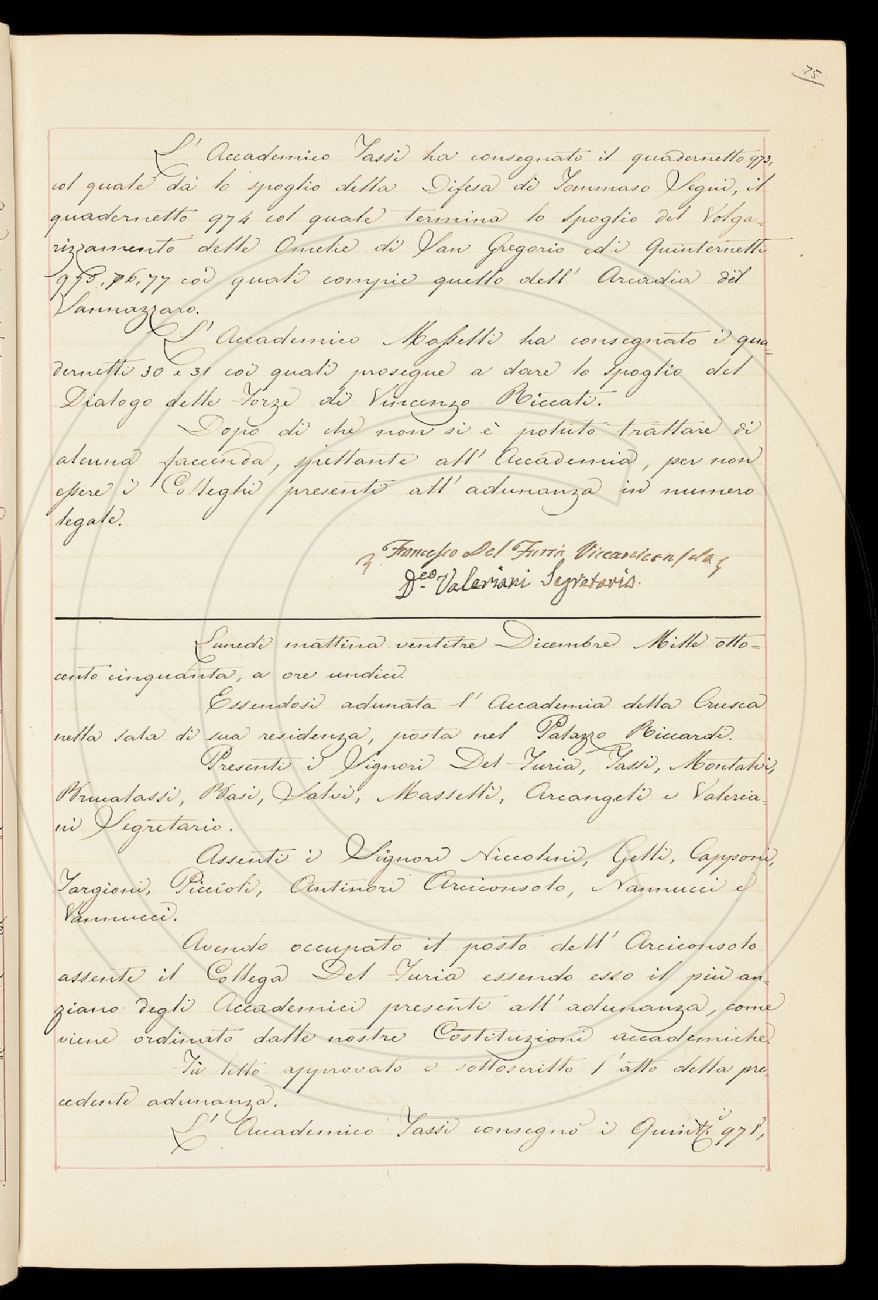 75
L' Accademico Tassi ha consegnato il quadernetto 973,
col quale dà lo spoglio della Difesa di Tommaso Segni, il
quadernetto 974 col quale termina lo spoglio del Volga-
rizzamento delle Omelie di San Gregorio ed i quinternetti
975, 76, 77 coi quali compie quello dell' Arcadia del
Sannazzaro.
L' Accademico Masselli ha consegnato i qua-
dernetti 30 e 31 coi quali prosegue a dare lo spoglio del
Dialogo delle Forze di Vincenzo Riccati.
Dopo di che non si è potuto trattare di
alcuna faccenda, spettante all' Accademia, per non
essere i Colleghi presenti all' adunanza in numero
legale.
Francesco Del Furia Viccarciconsolo
D.co Valeriani Segretario.
Lunedì mattina ventitre Dicembre Mille otto=
cento cinquanta, a ore undici.
Essendosi adunata l' Accademia della Crusca
nella sala di sua residenza, posta nel Palazzo Riccardi.
Presenti i Signori Del Furia, Tassi, Montalvi,
Brucalassi, Basi, Salvi, Masselli, Arcangeli e Valeria-
ni Segretario.
Assenti i Signori Niccolini, Gelli, Capponi,
Targioni, Piccioli, Antinori Arciconsolo, Nannucci e
Vannucci.
Avendo occupato il posto dell' Arciconsolo
assente il Collega Del Furia essendo esso il più an-
ziano degli Accademici presenti all' adunanza, come
viene ordinato dalle nostre Costituzioni accademiche.
Fù letto approvato e sottoscritto l' atto della pre-
cedente adunanza.
L' Accademico Tassi consegnò i 978,